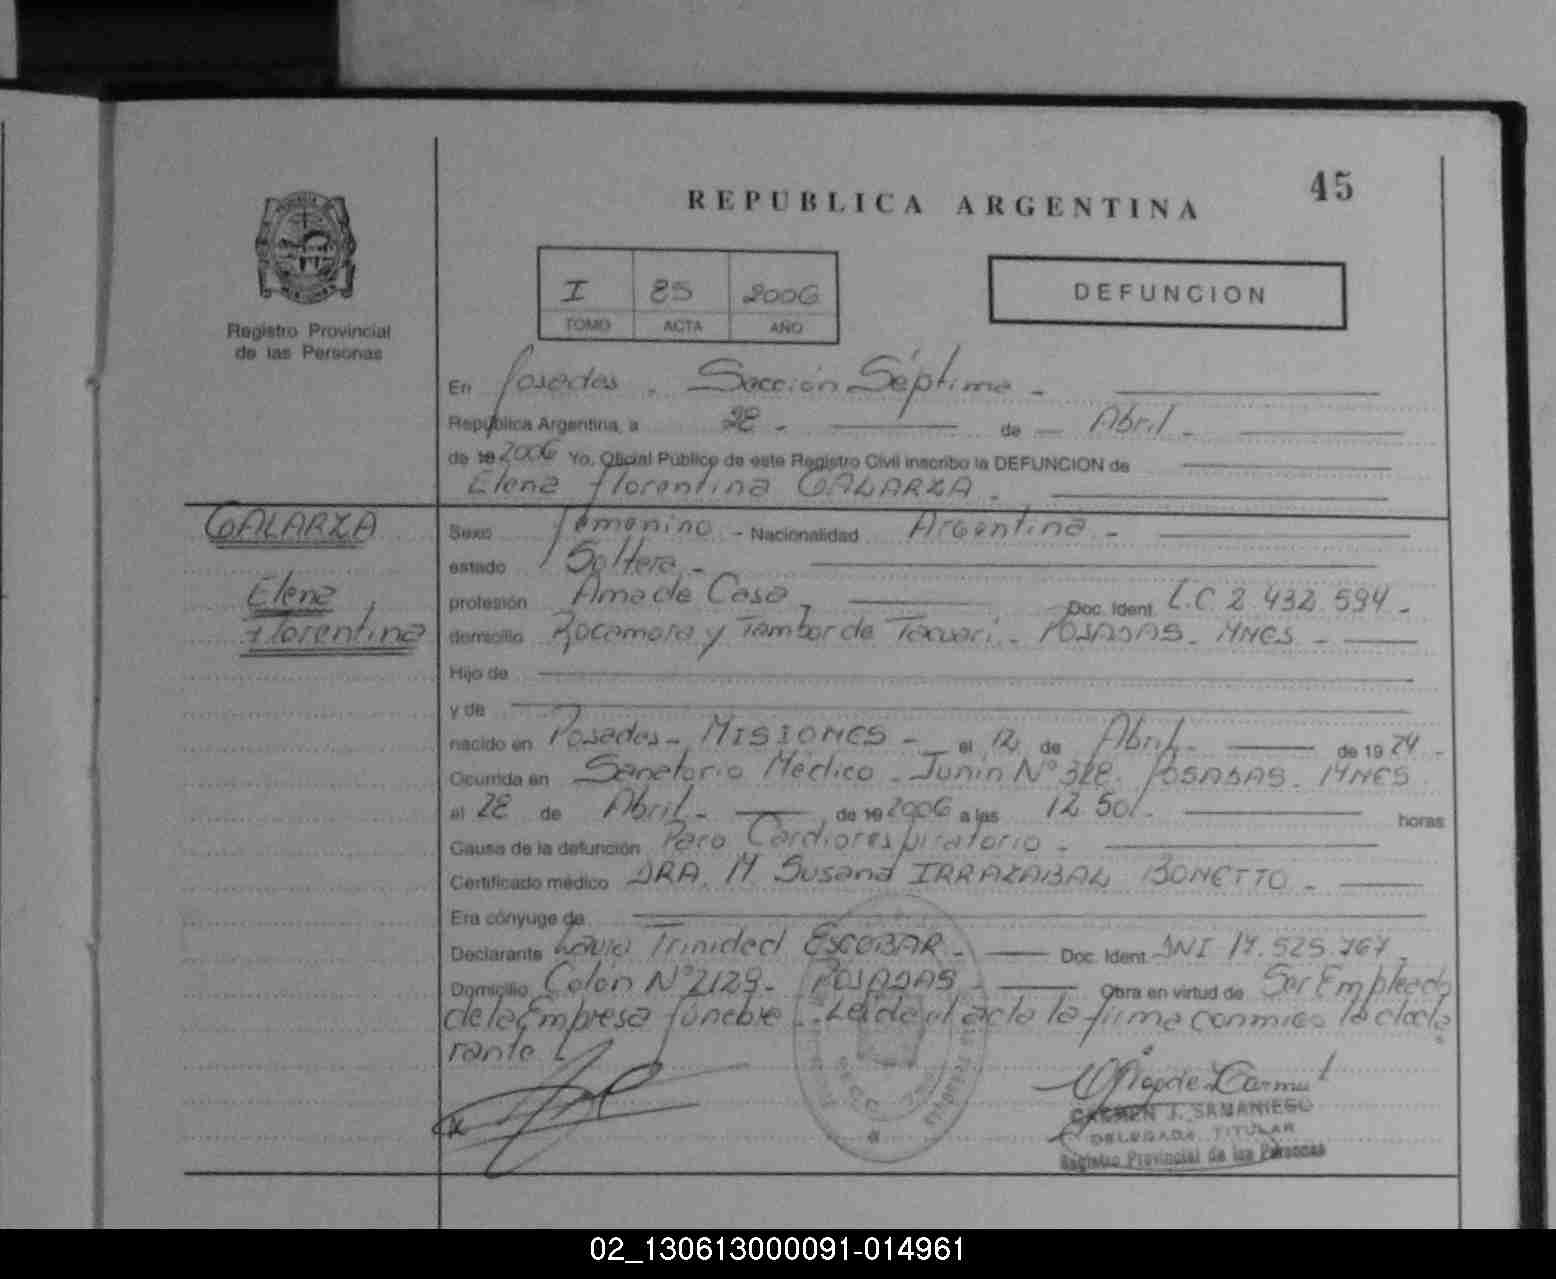 45
REPUBLICA ARGENTINA
Registro Provincial
de las Personas
I 85 2006
TOMO ACTA AÑO
DEFUNCION
En Posadas - Sección Séptima -
República Argentina, a 28 - de - Abril -
de 19 2006 Yo, Oficial Público de este Registro Civil inscribo la DEFUNCION de
Elena Florentina GALARZA -
GALARZA
Elena
Florentina
Sexo Femenino - Nacionalidad Argentina -
estado Soltera -
profesión Ama de Casa, Doc. Ident. L.C 2.432.594 -
domicilio Rocamora y Tambor de Tacuari - POSADAS - MNES -
Hijo de
y de
nacido en Posadas - MISIONES - el 12 de Abril - de 19 24 -
Ocurrida en Sanatorio Médico - Junin Nº 328. POSADAS - MNES
el 28 de Abril - de 19 2006 a las 12.50 horas
Causa de la defunción Paro Cardiorespiratorio -
Certificado médico DRA. M. Susana IRRAZABAL BONETTO -
Era cónyuge de
Declarante Trinidad ESCOBAR - Doc. Ident. DNI 17.525.767,
Domicilio Colón Nº 2129 - POSADAS - Obra en virtud de Ser Empleado
de la Empresa funebre - Leida el acta la firma conmigo la decla
rante
CARMEN J. SAMANIEGO
DELEGADA TITULAR
Registro Provincial de las Personas
02_130613000091-014961